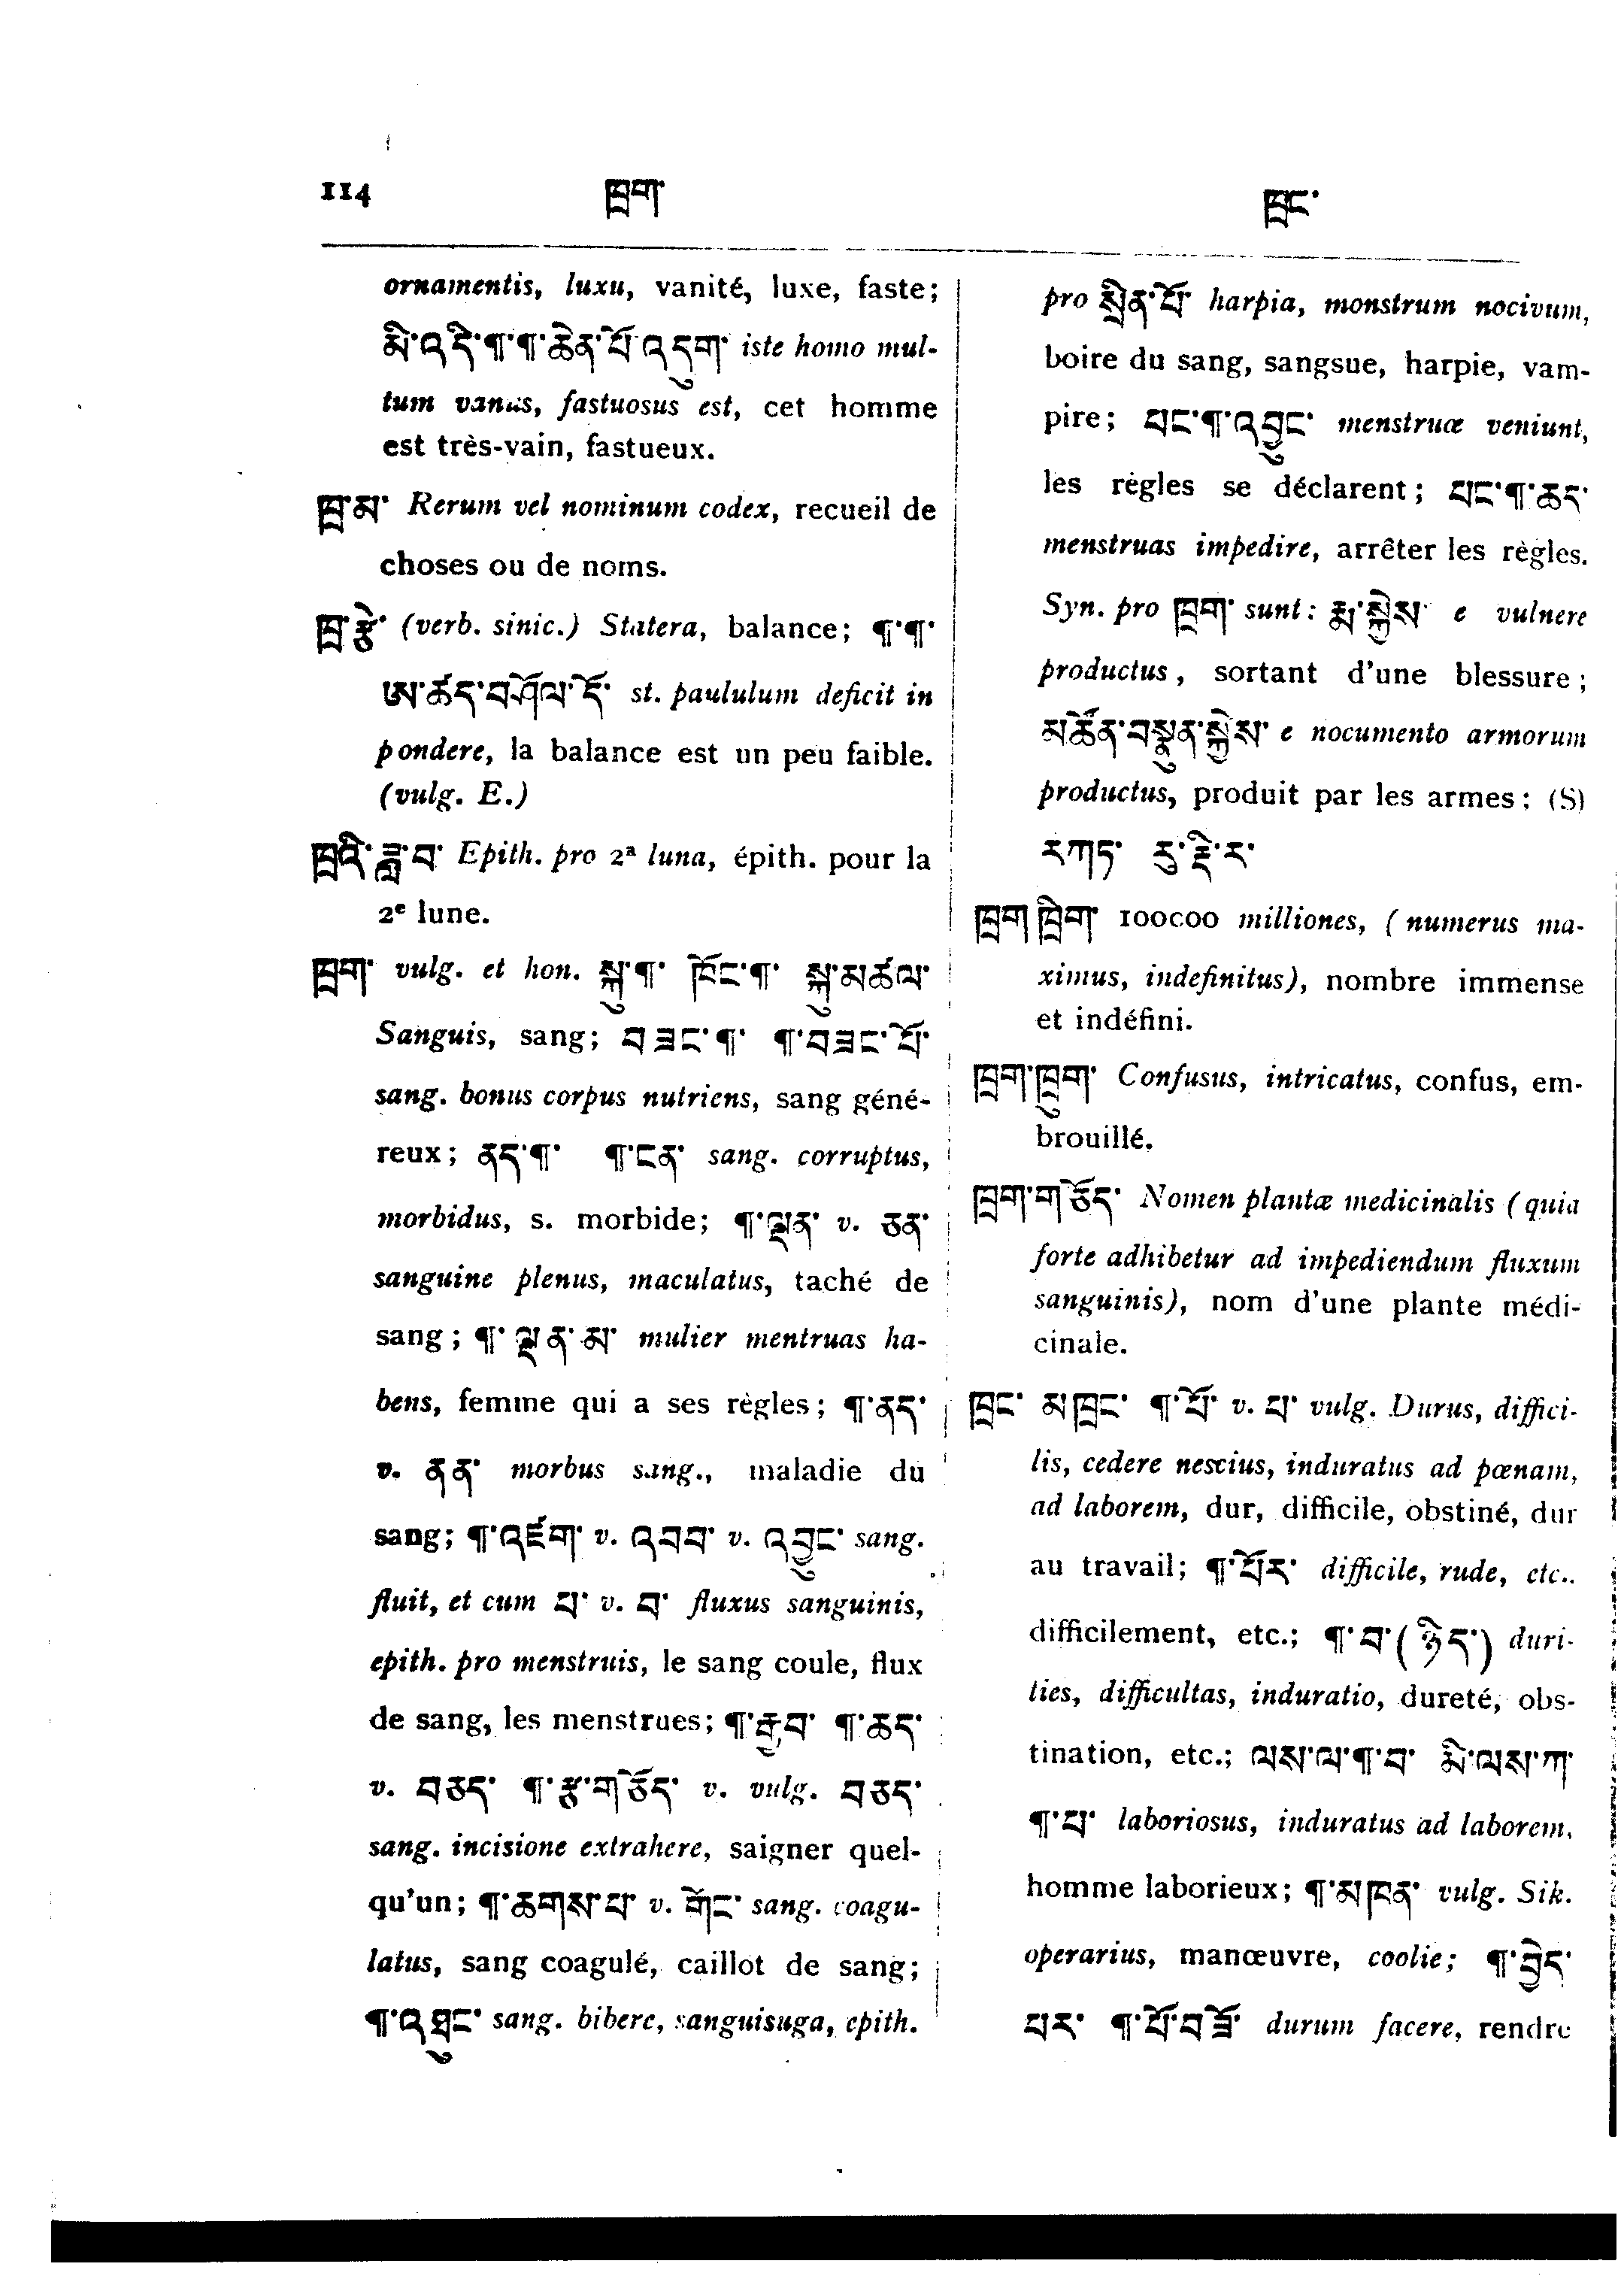 114 ཁྲག་ ཁྲང་
ornamentis, luxu, vanité, luxe, faste;
མི་འདི་¶་¶་ཆེན་པོ་འདུག་ iste homo mul-
tum vanus, fastuosus est, cet homme
est très-vain, fastueux.
ཁྲ་མ་ Rerum vel nominum codex, recueil de
choses ou de noms.
ཁྲ་རྩེ་ (verb. sinic.) Statera, balance; ¶་¶་
ཨ་ཚད་བཤོལ་དོ་ st. paululum deficit in
pondere, la balance est un peu faible.
(vulg. E.)
ཁྲའི་ཟླ་བ་ Epith. pro 2ª luna, épith. pour la
2e lune.
ཁྲག་ vulg. et hon. སྐུ་¶་ ཁོང་¶་ སྐུ་མཚལ་
Sanguis, sang; བཟང་¶་ ¶་བཟང་པོ་
sang. bonus corpus nutriens, sang géné-
reux; ནད་¶་ ¶་ངན་ sang. corruptus,
morbidus, s. morbide; ¶་ལྡན་ v. ཅན་
sanguine plenus, maculatus, taché de
sang; ¶་ལྡན་མ་ mulier mentruas ha-
bens, femme qui a ses règles; ¶་ནད་
v. ནན་ morbus sang., maladie du
sang; ¶་འཛག་ v. འབབ་ v. འབྱུང་ sang.
fluit, et cum པ་ v. བ་ fluxus sanguinis,
epith. pro menstruis, le sang coule, flux
de sang, les menstrues; ¶་རྒྱབ་ ¶་ཆད་
v. བཅད་ ¶་རྩ་གཅོད་ v. vulg. བཅད་
sang. incisione extrahere, saigner quel-
qu'un; ¶་ཆགས་པ་ v. གོང་ sang. coagu-
latus, sang coagulé, caillot de sang;
¶་འཐུང་ sang. bibere, sanguisuga, epith.
pro སྲིན་པོ་ harpia, monstrum nocivum,
boire du sang, sangsue, harpie, vam-
pire; པང་¶་འབྱུང་ menstruæ veniunt,
les règles se déclarent; པང་¶་ཆད་
menstruas impedire, arrêter les règles.
Syn. pro ཁྲག་ sunt: རྨ་སྐྱེས་ e vulnere
productus, sortant d'une blessure;
མཚོན་བསྣུན་སྐྱེས་ e nocumento armorum
productus, produit par les armes; (S)
རཀཏ་ རུ་རྡི་ར་
ཁྲག་ཁྲིག་ 100000 milliones, (numerus ma-
ximus, indefinitus), nombre immense
et indéfini.
ཁྲག་ཁྲུག་ Confusus, intricatus, confus, em-
brouillé.
ཁྲག་གཅོད་ Nomen plantæ medicinalis (quia
forte adhibetur ad impediendum fluxum
sanguinis), nom d'une plante médi-
cinale.
ཁྲང་ མཁྲང་ ¶་པོ་ v. པ་ vulg. Durus, diffici-
lis, cedere nescius, induratus ad pœnam,
ad laborem, dur, difficile, obstiné, dur
au travail; ¶་པོར་ difficile, rude, etc..
difficilement, etc.; ¶་བ་(ཉིད་) duri-
ties, difficultas, induratio, dureté, obs-
tination, etc.; ལས་ལ་¶་བ་ མི་ལས་ཀ་
¶་པ་ laboriosus, induratus ad laborem,
homme laborieux; ¶་མཁན་ vulg. Sik.
operarius, manœuvre, coolie; ¶་བྱེད་
པར་ ¶་པོ་བཟོ་ durum facere, rendre